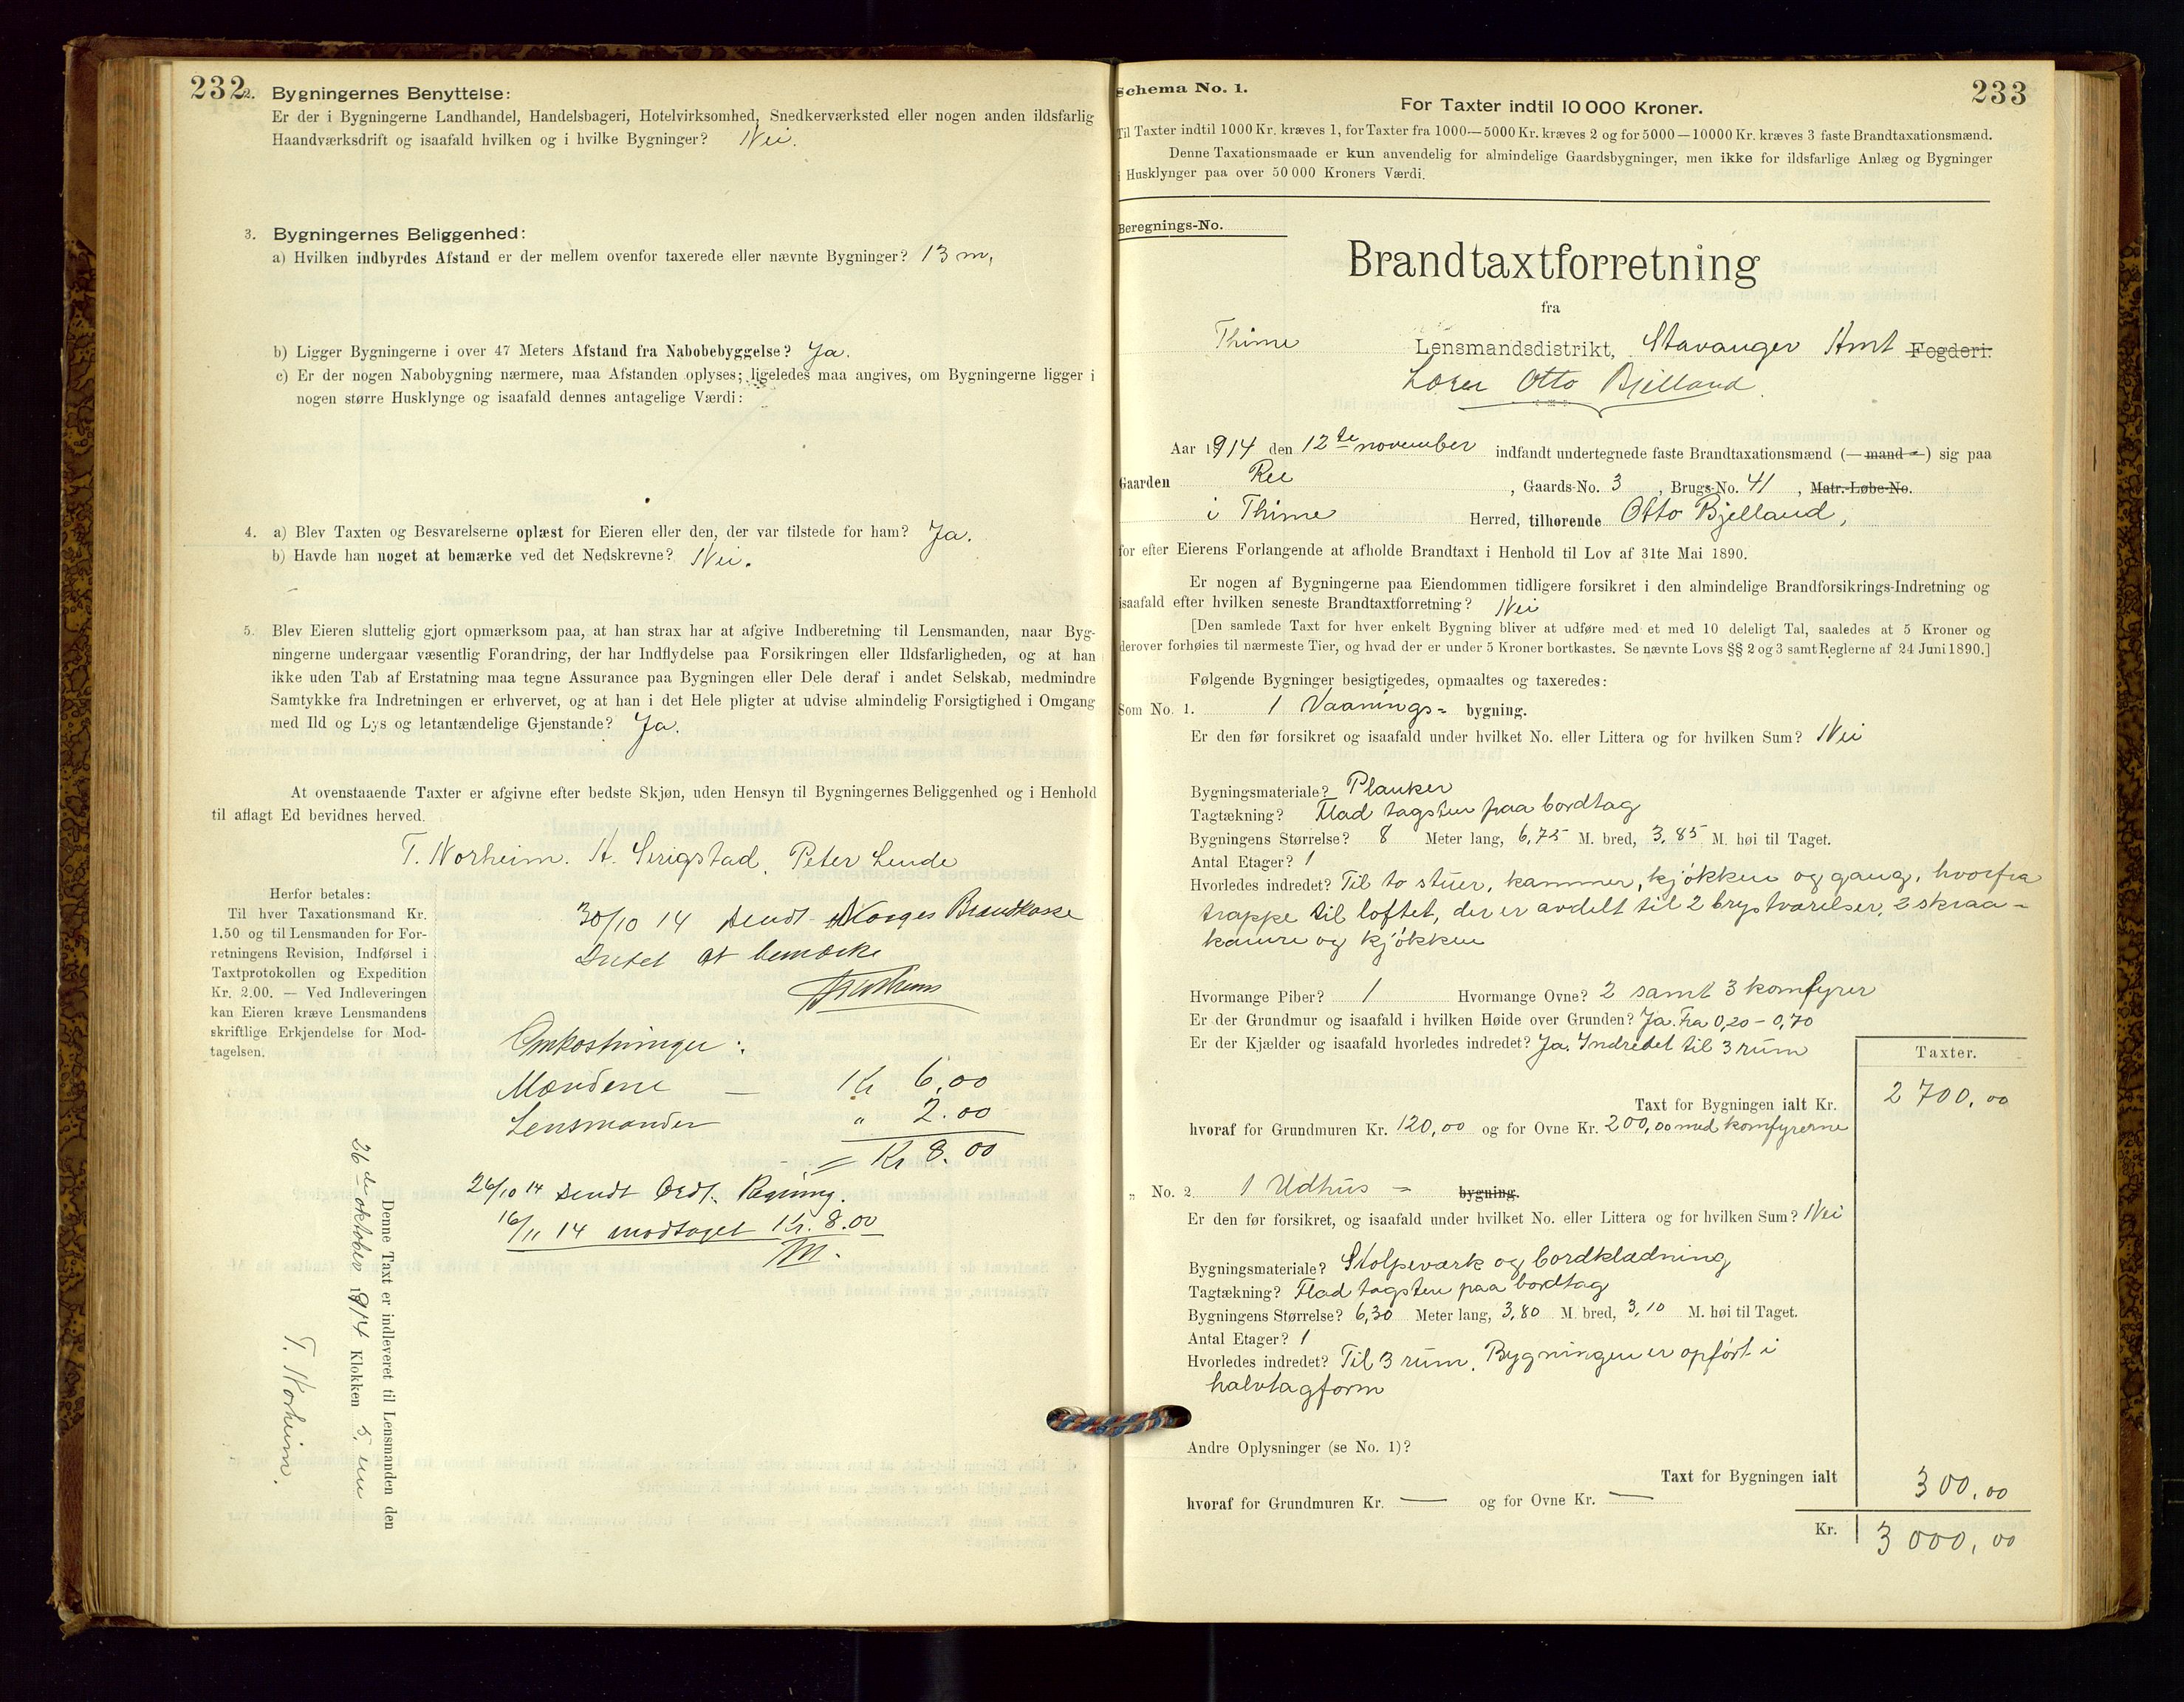 232
2. Bygningernes Benyttelse:
Er der i Bygningerne Landhandel, Handelsbageri, Hotelvirksomhed, Snedkerværksted eller nogen anden ildsfarlig
Haandværksdrift og isaafald hvilken og i hvilke Bygninger? Nei.
3. Bygningernes Beliggenhed:
a) Hvilken indbyrdes Afstand er der mellem ovenfor taxerede eller nævnte Bygninger? 13 m,
b) Ligger Bygningerne i over 47 Meters Afstand fra Nabobebyggelse? Ja.
c) Er der nogen Nabobygning nærmere, maa Afstanden oplyses; ligeledes maa angives, om Bygningerne ligger i
nogen større Husklynge og isaafald dennes antagelige Værdi:
4. a) Blev Taxten og Besvarelserne oplæst for Eieren eller den, der var tilstede for ham? Ja.
b) Havde han noget at bemærke ved det Nedskrevne? Nei.
5. Blev Eieren sluttelig gjort opmærksom paa, at han strax har at afgive Indberetning til Lensmanden, naar Byg-
ningerne undergaar væsentlig Forandring, der har Indflydelse paa Forsikringen eller Ildsfarligheden, og at han
ikke uden Tab af Erstatning maa tegne Assurance paa Bygningen eller Dele deraf i andet Selskab, medmindre
Samtykke fra Indretningen er erhvervet, og at han i det Hele pligter at udvise almindelig Forsigtighed i Omgang
med Ild og Lys og letantændelige Gjenstande? Ja.
At ovenstaaende Taxter er afgivne efter bedste Skjøn, uden Hensyn til Bygningernes Beliggenhed og i Henhold
til aflagt Ed bevidnes herved.
T. Norheim. A. Serigstad. Peter Lende
Herfor betales:
Til hver Taxationsmand Kr.
1.50 og til Lensmanden for For-
retningens Revision, Indførsel i
Taxtprotokollen og Expedition
Kr. 2.00. — Ved Indleveringen
kan Eieren kræve Lensmandens
skriftlige Erkjendelse for Mod-
tagelsen.
30/10 14 sendt Norges Brandkasse
Intet at bemærke
Omkostninger:
Mændene — Kr 6,00
Lensmanden " 2.00
= Kr 8.00
26/10 14 sendt Regning.
16/11 14 modtaget Kr. 8.00
Denne Taxt er indleveret til Lensmanden den
26de oktober 1914 Klokken 5 em
T. Norheim.
233
Schema No. 1.
For Taxter indtil 10 000 Kroner.
Til Taxter indtil 1000 Kr. kræves 1, for Taxter fra 1000—5000 Kr. kræves 2 og for 5000—10000 Kr. kræves 3 faste Brandtaxationsmænd.
Denne Taxationsmaade er kun anvendelig for almindelige Gaardsbygninger, men ikke for ildsfarlige Anlæg og Bygninger
i Husklynger paa over 50 000 Kroners Værdi.
Beregnings-No.
Brandtaxtforretning
fra
Thime Lensmandsdistrikt, Stavanger Amt Fogderi.
Otto Bjelland.
Aar 1914 den 12te november indfandt undertegnede faste Brandtaxationsmænd (—mand—) sig paa
Gaarden Ree, Gaards-No. 3, Brugs-No. 41, Matr.-Løbe-No.
i Thime Herred, tilhørende Otto Bjelland,
for efter Eierens Forlangende at afholde Brandtaxt i Henhold til Lov af 31te Mai 1890.
Er nogen af Bygningerne paa Eiendommen tidligere forsikret i den almindelige Brandforsikrings-Indretning og
isaafald efter hvilken seneste Brandtaxtforretning? Nei
[Den samlede Taxt for hver enkelt Bygning bliver at udføre med et med 10 deleligt Tal, saaledes at 5 Kroner og
derover forhøies til nærmeste Tier, og hvad der er under 5 Kroner bortkastes. Se nævnte Lovs §§ 2 og 3 samt Reglerne af 24 Juni 1890.]
Følgende Bygninger besigtigedes, opmaaltes og taxeredes:
Som No. 1. 1 Vaanings= bygning.
Er den før forsikret og isaafald under hvilket No. eller Littera og for hvilken Sum? Nei
Bygningsmateriale? Planker
Tagtækning? Flad tagsten paa bordtag
Bygningens Størrelse? 8 Meter lang, 6,75 M. bred, 3,85 M. høi til Taget.
Antal Etager? 1
Hvorledes indredet? Til to stuer, kammer, kjøkken og gang, hvorfra
trappe til loftet, der er avdelt til 2 brystværelser, 2 skraa-
kamre og kjøkken
Hvormange Piber? 1 Hvormange Ovne? 2 samt 3 komfyrer
Er der Grundmur og isaafald i hvilken Høide over Grunden? Ja. Fra 0,20 - 0,70
Er der Kjælder og isaafald hvorledes indredet? Ja. Indredet til 3 rum
Taxter.
Taxt for Bygningen ialt Kr. 2 700,00
hvoraf for Grundmuren Kr. 120,00 og for Ovne Kr. 200,00 med komfyrerne
" No. 2 1 Udhus = bygning.
Er den før forsikret, og isaafald under hvilket No. eller Littera og for hvilken Sum? Nei
Bygningsmateriale? Stolpeværk og bordklædning
Tagtækning? Flad tagsten paa bordtag
Bygningens Størrelse? 6,30 Meter lang, 3,80 M. bred, 3,10 M. høi til Taget.
Antal Etager? 1
Hvorledes indredet? Til 3 rum. Bygningen er opført i
halvtagform
Andre Oplysninger (se No. 1)?
Taxt for Bygningen ialt 300,00
hvoraf for Grundmuren Kr. — og for Ovne Kr. —
Kr. 3 000,00